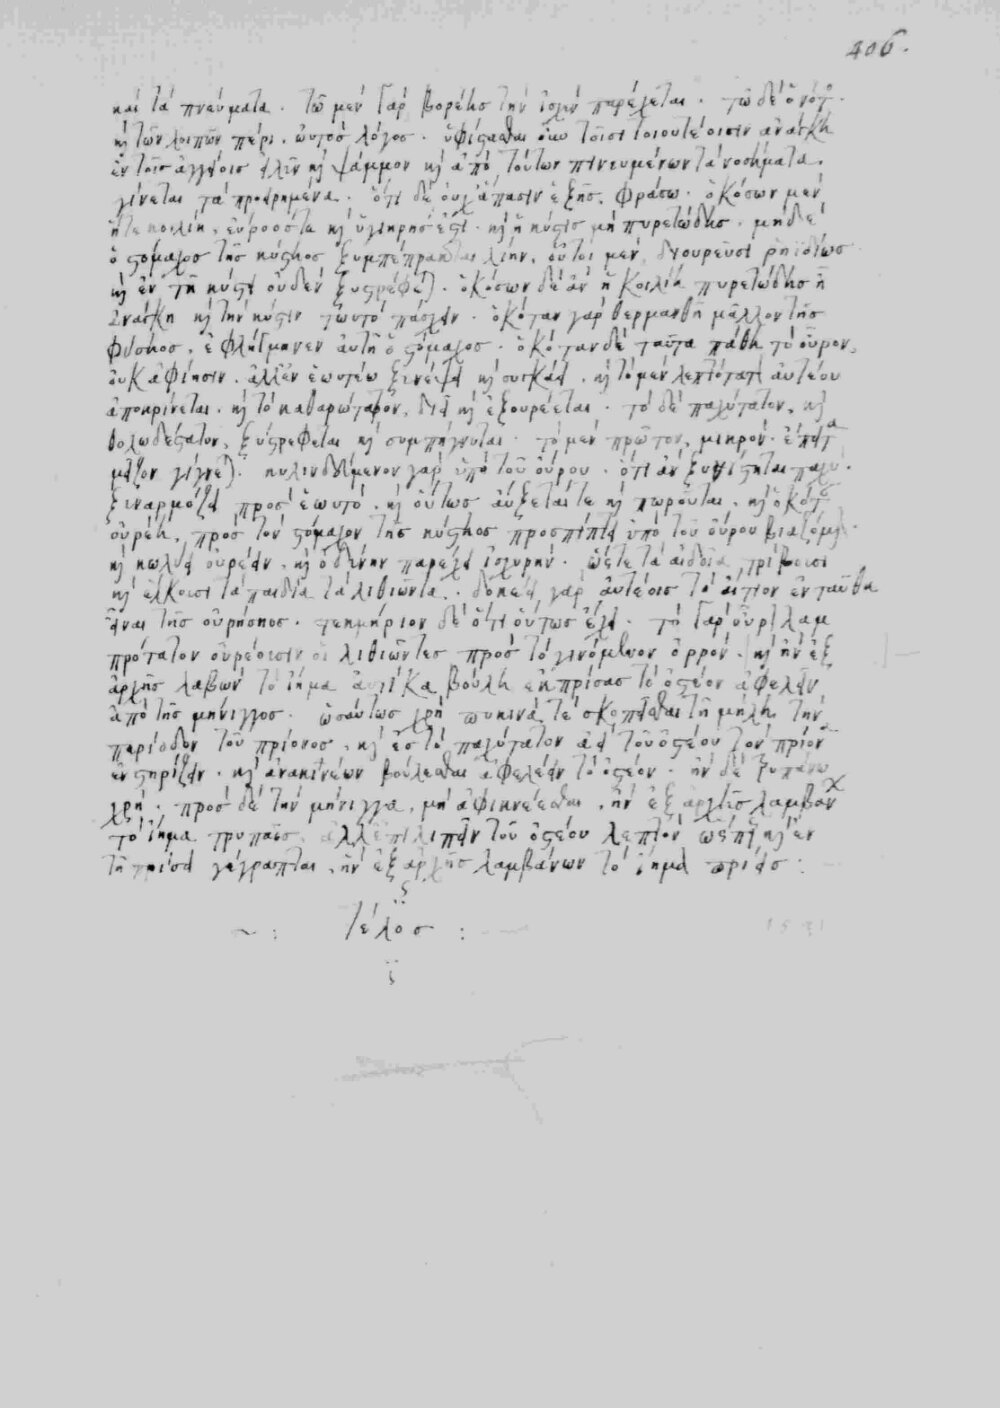 406.
καὶ τὰ πνεύματα. τῶ μὲν γὰρ βορέης τὴν ἰσχὺν παρέχεται. τῶ δὲ ὁ νότος.
καὶ τῶν λοιπῶν πέρι, ὠυτὸς λόγος. ὑφίστασθαι οὖν τοῖσι τοιουτέοισιν ἀνάγκη
ἐν τοῖς ἀγγείοις ἰλὺν καὶ ψάμμον καὶ ἀπὸ τούτων πινευμένων τὰ νοσήματα.
γίνεται τὰ προειρημένα. ὅτι δὲ οὐχ ἅπασιν ἑξῆς, φράσω. ὁκόσων μὲν
ἥτε κοιλίη, εὔροός τε καὶ ὑγιηρής ἐστι. καὶ ἡ κύστις μὴ πυρετώδης. μηδὲ
ὁ στόμαχος τῆς κύστηος ξυμπέπρακται λίην, οὗτοι μὲν διουρεῦσι ῥηϊδίως
καὶ ἐν τῆ κύστι οὐδὲν ξυστρέφεται. ὁκόσων δὲ ἂν ἡ κοιλίη πυρετώδης ἦ
ἀνάγκη καὶ τὴν κύστιν τωυτὸ πάσχειν. ὁκόταν γὰρ θερμανθῆ μᾶλλον τῆς
φύσηος, ἐφλήγμηνεν αὐτῆ ὁ στόμαχος. ὁκόταν δὲ ταῦτα πάθη τὸ οὖρον,
οὐκ ἀφίησιν. ἀλλ' ἐν ἑωυτέω ξυνέψει καὶ συγκαίει. καὶ τὸ μὲν λεπτότατον αὐτέου
ἀποκρίνεται. καὶ τὸ καθαρώτατον, διεῖ καὶ ἐξουρέεται. τὸ δὲ παχύτατον, καὶ
θολωδέστατον, ξυστρέφεται καὶ συμπήγνυται. τὸ μὲν πρῶτον, μικρόν. ἔπειτα
μεῖζον γίγνεται. κυλινδούμενον γὰρ ὑπὸ τοῦ οὔρου. ὅτι ἂν ξυνίστηται παχὺ.
ξυναρμόζει πρὸς ἑωυτό. καὶ οὕτως αὔξεταί τε καὶ πωροῦται. καὶ ὁκόταν
οὐρέη, πρὸς τὸν στόμαχον τῆς κύστηος προσπίπτει ὑπὸ τοῦ οὔρου βιαζόμενον.
καὶ κωλύει οὐρέειν. καὶ ὀδύνην παρέχει ἰσχυρήν. ὥστε τὰ αἰδοῖα τρίβουσι
καὶ ἕλκουσι τὰ παιδία τὰ λιθιῶντα. δοκέει γὰρ αὐτέοις τὸ αἴτιον ἐνταῦθα
εἶναι τῆς οὐρήσηος. τεκμήριον δὲ ὅτι οὕτως ἔχει. τὸ γὰρ οὖρον λαμ
πρότατον οὐρέουσιν οἱ λιθιῶντες πρὸς τὸ γινόμενον ὀρρόν. καὶ ἢν ἐξ
ἀρχῆς λαβὼν τὸ ἴημα αὐτίκα βούλη ἐκπρίσας τὸ ὀστέον ἀφελεῖν
ἀπὸ τῆς μήνιγγος. ὡσαύτως χρὴ πυκινά τε σκοπεῖσθαι τῆ μήλη τὴν
περίοδον τοῦ πρίονος. καὶ ἐς τὸ παχύτατον ἀεὶ τοῦ ὀστέου τὸν πρίονα
ἐνστηρίζειν. καὶ ἀνακινέων βούλεσθαι ἀφελέειν τὸ ὀστέον. ἢν δὲ τρυπάνω
χρῆ. πρὸς δὲ τὴν μήνιγγα, μὴ ἀφικνέεσθαι, ἢν ἐξ ἀρχῆς λαμβάνων
τὸ ἴημα τρυπᾶς. ἀλλ' ἐπιλιπεῖν τοῦ ὀστέου λεπτὸν ὥσπερ καὶ ἐν
τῆ πρίσει γέγραπται, ἢν ἐξ ἀρχῆς λαμβάνων τὸ ἴημα πρίης :
τέλος :